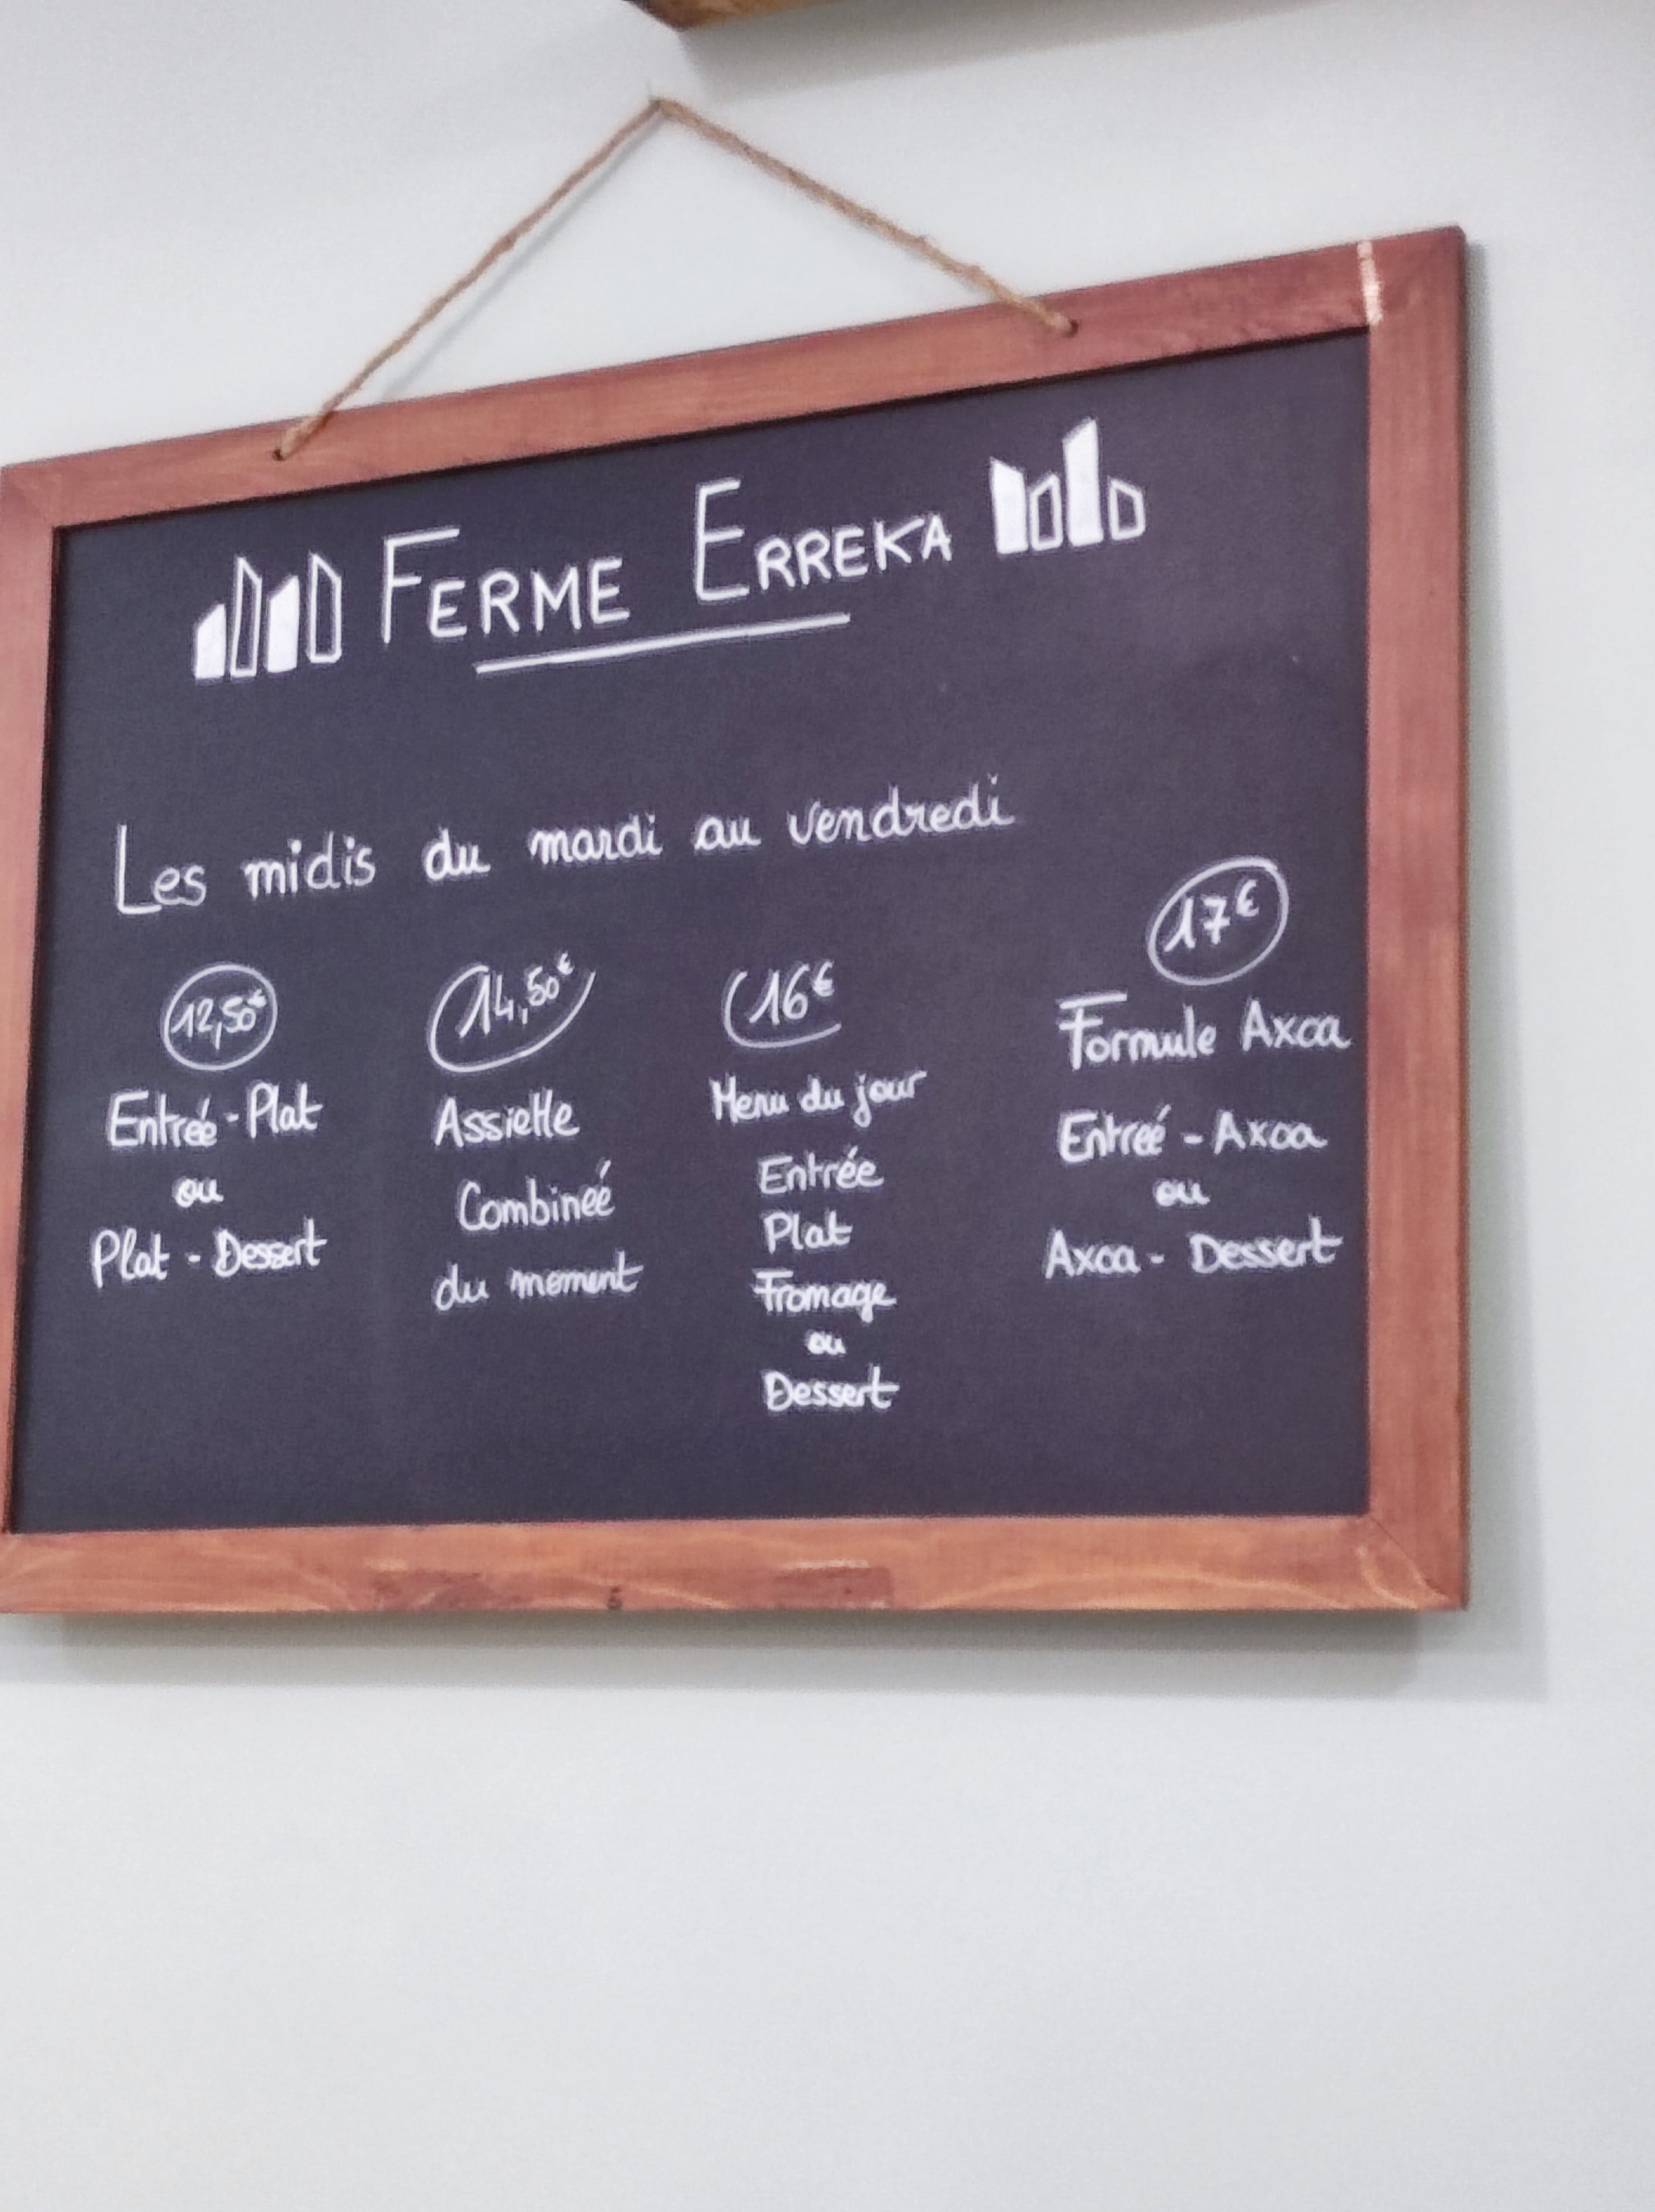 FERME ERREKA
Les midis du mardi au vendredi
12,50€
Entrée-Plat
ou
Plat - Dessert
14,50€
Assiette
Combinée
du moment
16€
Menu du jour
Entrée
Plat
Fromage
ou
Dessert
17€
Formule Axoa
Entrée - Axoa
ou
Axoa - Dessert